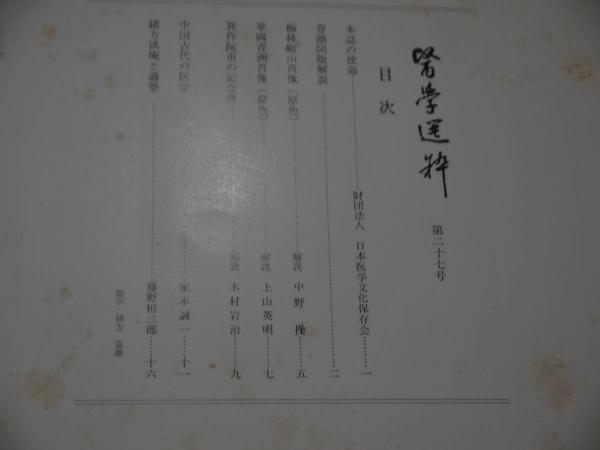 醫學選粹
第二十七号
目次
本誌の使命……財団法人 日本医学文化保存会……一
巻頭図版解説……二
楢林 山肖像（原色）……解説 中野 操……五
華岡青洲肖像（原色）……解説 上山英明……七
箕作阮甫の記念像……解説 木村岩治……九
中国古代の医学……家本誠一……十一
緒方洪庵と適塾……藤野恒三郎……十六
題字 緒方 富雄